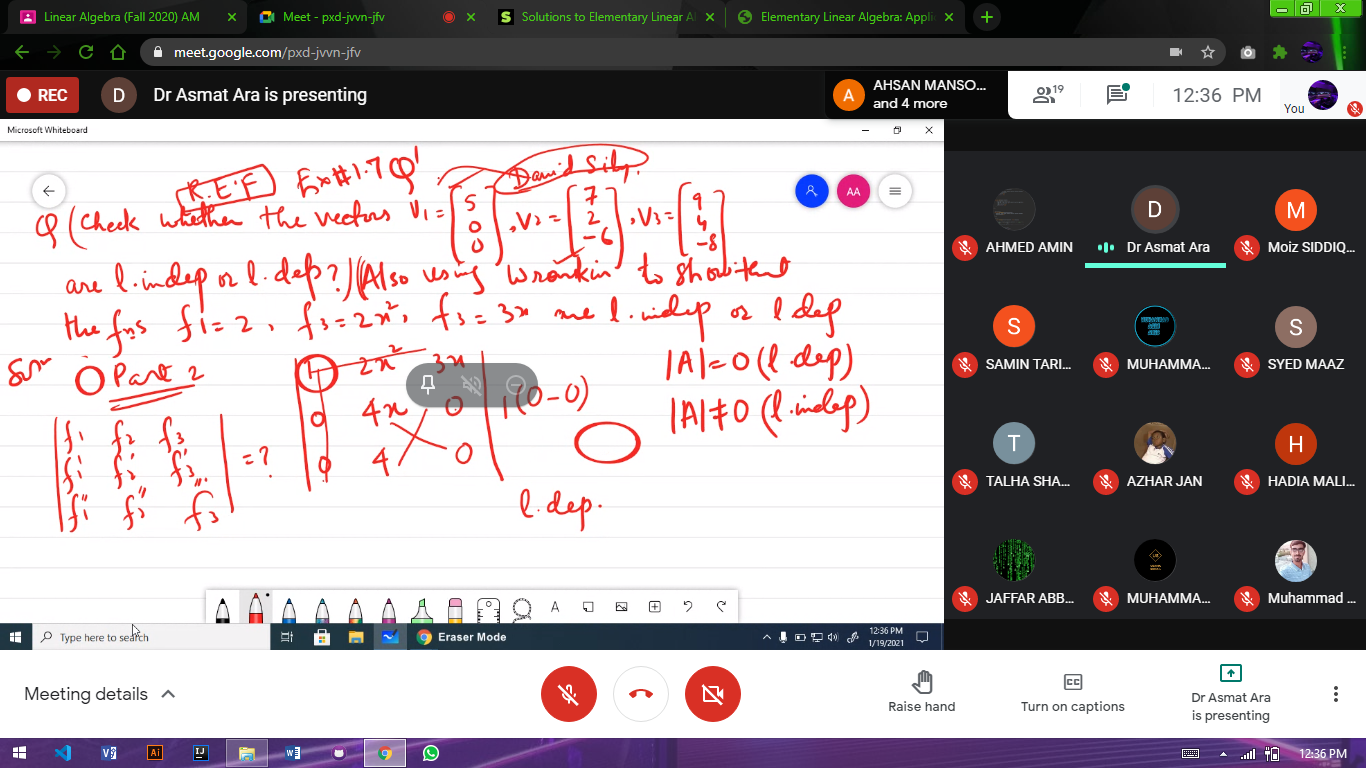 Linear Algebra (Fall 2020) AM
Meet - pxd-jvvn-jfv
Solutions to Elementary Linear A
Elementary Linear Algebra: Appli
meet.google.com/pxd-jvvn-jfv
REC
D
Dr Asmat Ara is presenting
A
AHSAN MANSO...
and 4 more
19
12:36 PM
You
Microsoft Whiteboard
AA
R.E.F Ex#1.7 Q1 David
Q (Check whether the vectors V1 = [5 0 0], V2 = [7 2 -6], V3 = [9 4 -8]
are l.indep or l.dep?) (Also using Wronkin to show that
the fns f1 = 2, f3 = 2x², f3 = 3x are l.indep or l dep
Part 2
f1 f2 f3
f1' f2' f3'
f1'' f2'' f3''
= ?
1 2x² 3x
0 4x 0
0 4 0
1(0-0)
|A| = 0 (l.dep)
|A| ≠ 0 (l.indep)
l.dep.
A
Type here to search
Eraser Mode
12:36 PM
1/19/2021
AHMED AMIN
D
Dr Asmat Ara
M
Moiz SIDDIQ...
S
SAMIN TARI...
MUHAMMA...
S
SYED MAAZ
T
TALHA SHA...
AZHAR JAN
H
HADIA MALI...
JAFFAR ABB...
MUHAMMA...
Muhammad ...
Meeting details
Raise hand
CC
Turn on captions
Dr Asmat Ara
is presenting
Ai
IJ
W
12:36 PM